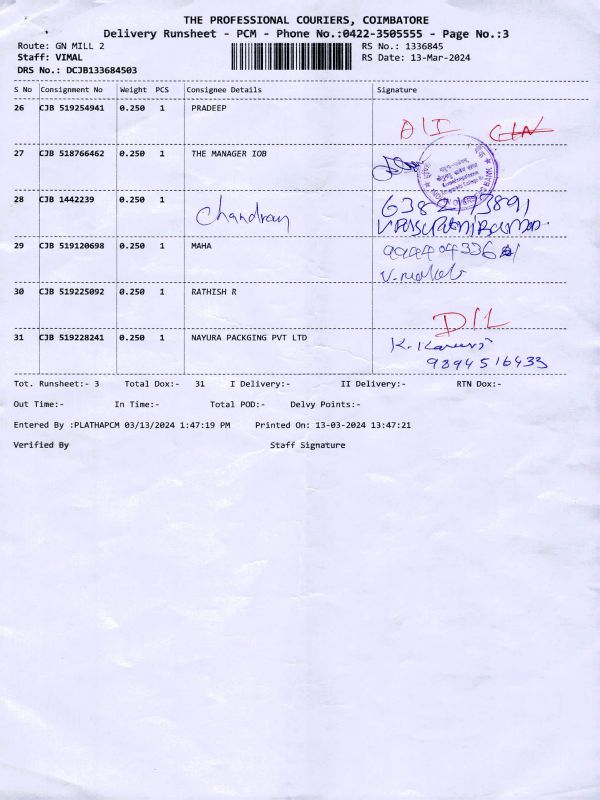 THE PROFESSIONAL COURIERS, COIMBATORE
Delivery Runsheet - PCM - Phone No.:0422-3505555 - Page No.:3
Route: GN MILL 2 RS No.: 1336845
Staff: VIMAL RS Date: 13-Mar-2024
DRS No.: DCJB133684503
S No Consignment No Weight PCS Consignee Details Signature
26 CJB 519254941 0.250 1 PRADEEP
27 CJB 518766462 0.250 1 THE MANAGER IOB
28 CJB 1442239 0.250 1 Chandran 6382173891
29 CJB 519120698 0.250 1 MAHA
30 CJB 519225092 0.250 1 RATHISH R
D/L
31 CJB 519228241 0.250 1 NAYURA PACKGING PVT LTD
9894516433
Tot. Runsheet:- 3 Total Dox:- 31 I Delivery:- II Delivery:- RTN Dox:-
Out Time:- In Time:- Total POD:- Delvy Points:-
Entered By :PLATHAPCM 03/13/2024 1:47:19 PM Printed On: 13-03-2024 13:47:21
Verified By Staff Signature